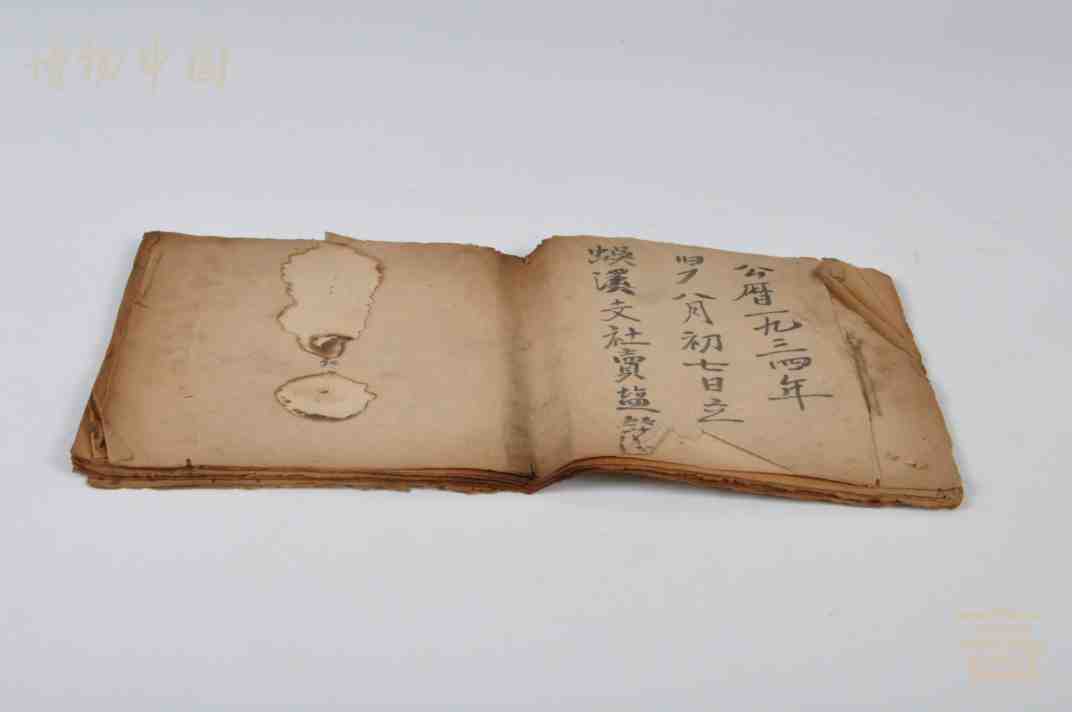 博物中国
公曆一九三四年
旧八月初七日立
蜈溪文社賣塩簿